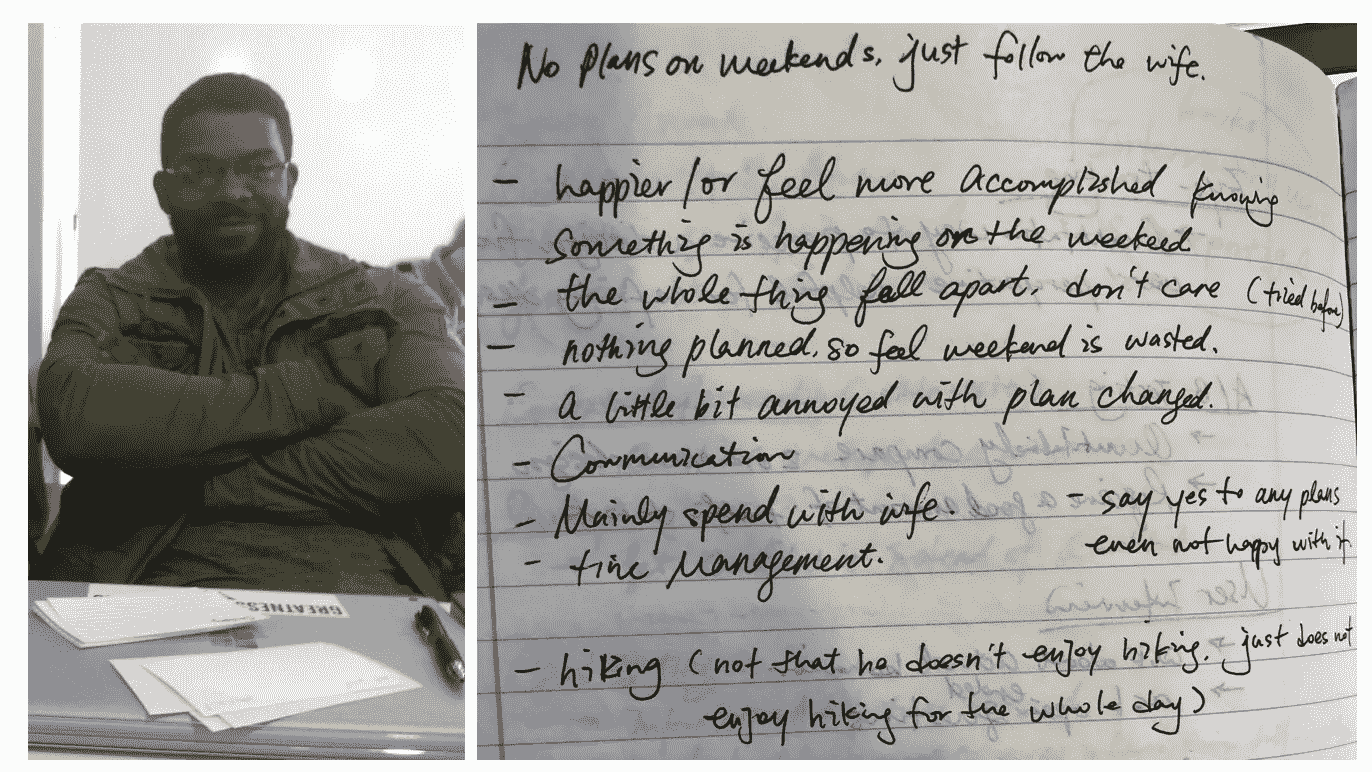 GREATNESS
No plans on weekends, just follow the wife.
- happier/or feel more accomplished knowing
something is happening on the weeked
- the whole thing fall apart. don't care (tried before)
- nothing planned, so feel weekend is wasted.
- a little bit annoyed with plan changed.
- Communication
- Mainly spend with wife. - say yes to any plans
even not happy with it.
- time Management.
- hiking (not that he doesn't enjoy hiking. just does not
enjoy hiking for the whole day)
User Interviews